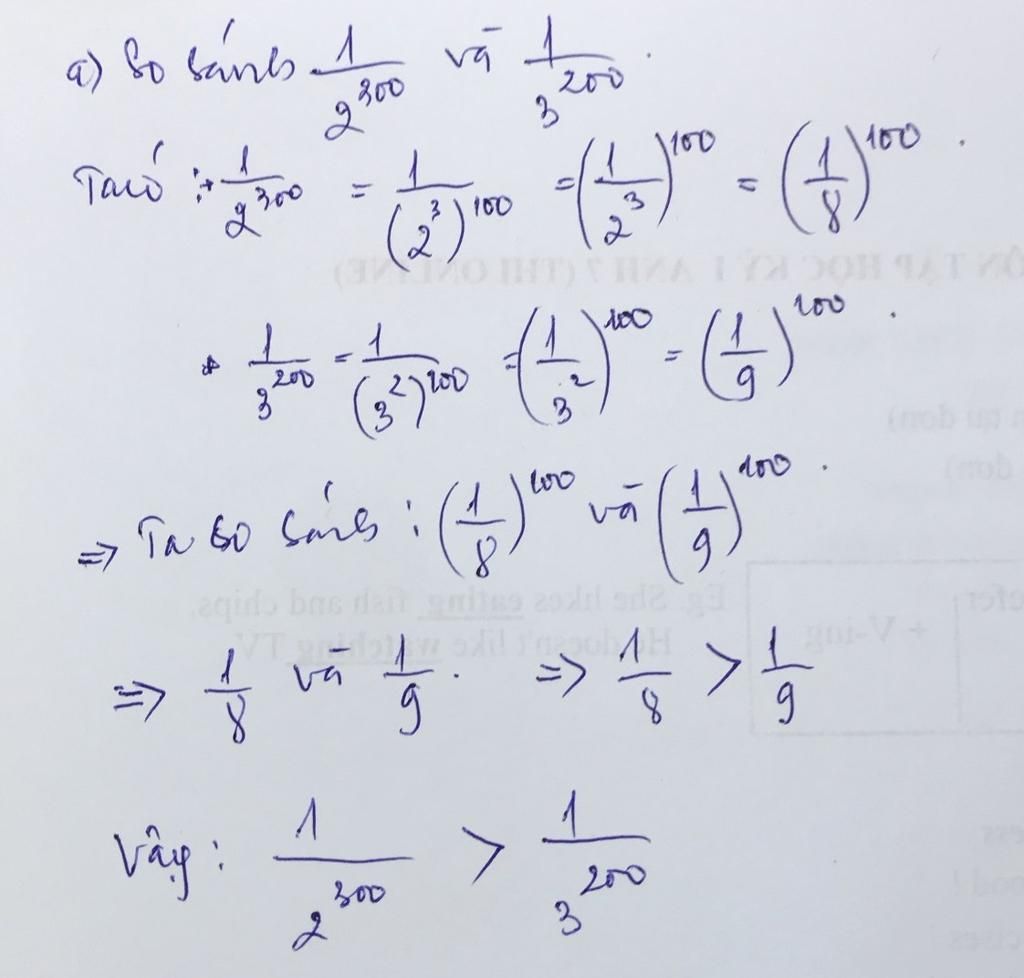 a) So sánh 1/2^300 và 1/3^200.
Ta có : + 1/2^300 = 1/(2^3)^100 = (1/2^3)^100 = (1/8)^100.
+ 1/3^200 = 1/(3^2)^100 = (1/3^2)^100 = (1/9)^100.
=> Ta so sánh : (1/8)^100 và (1/9)^100.
=> 1/8 và 1/9. => 1/8 > 1/9
Vậy : 1/2^300 > 1/3^200
ÔN TẬP HỌC KỲ 1 ANH 7 (THI ONLINE)
đơn)
Eg. She likes eating fish and chips.
He doesn't like watching TV
+ V-ing